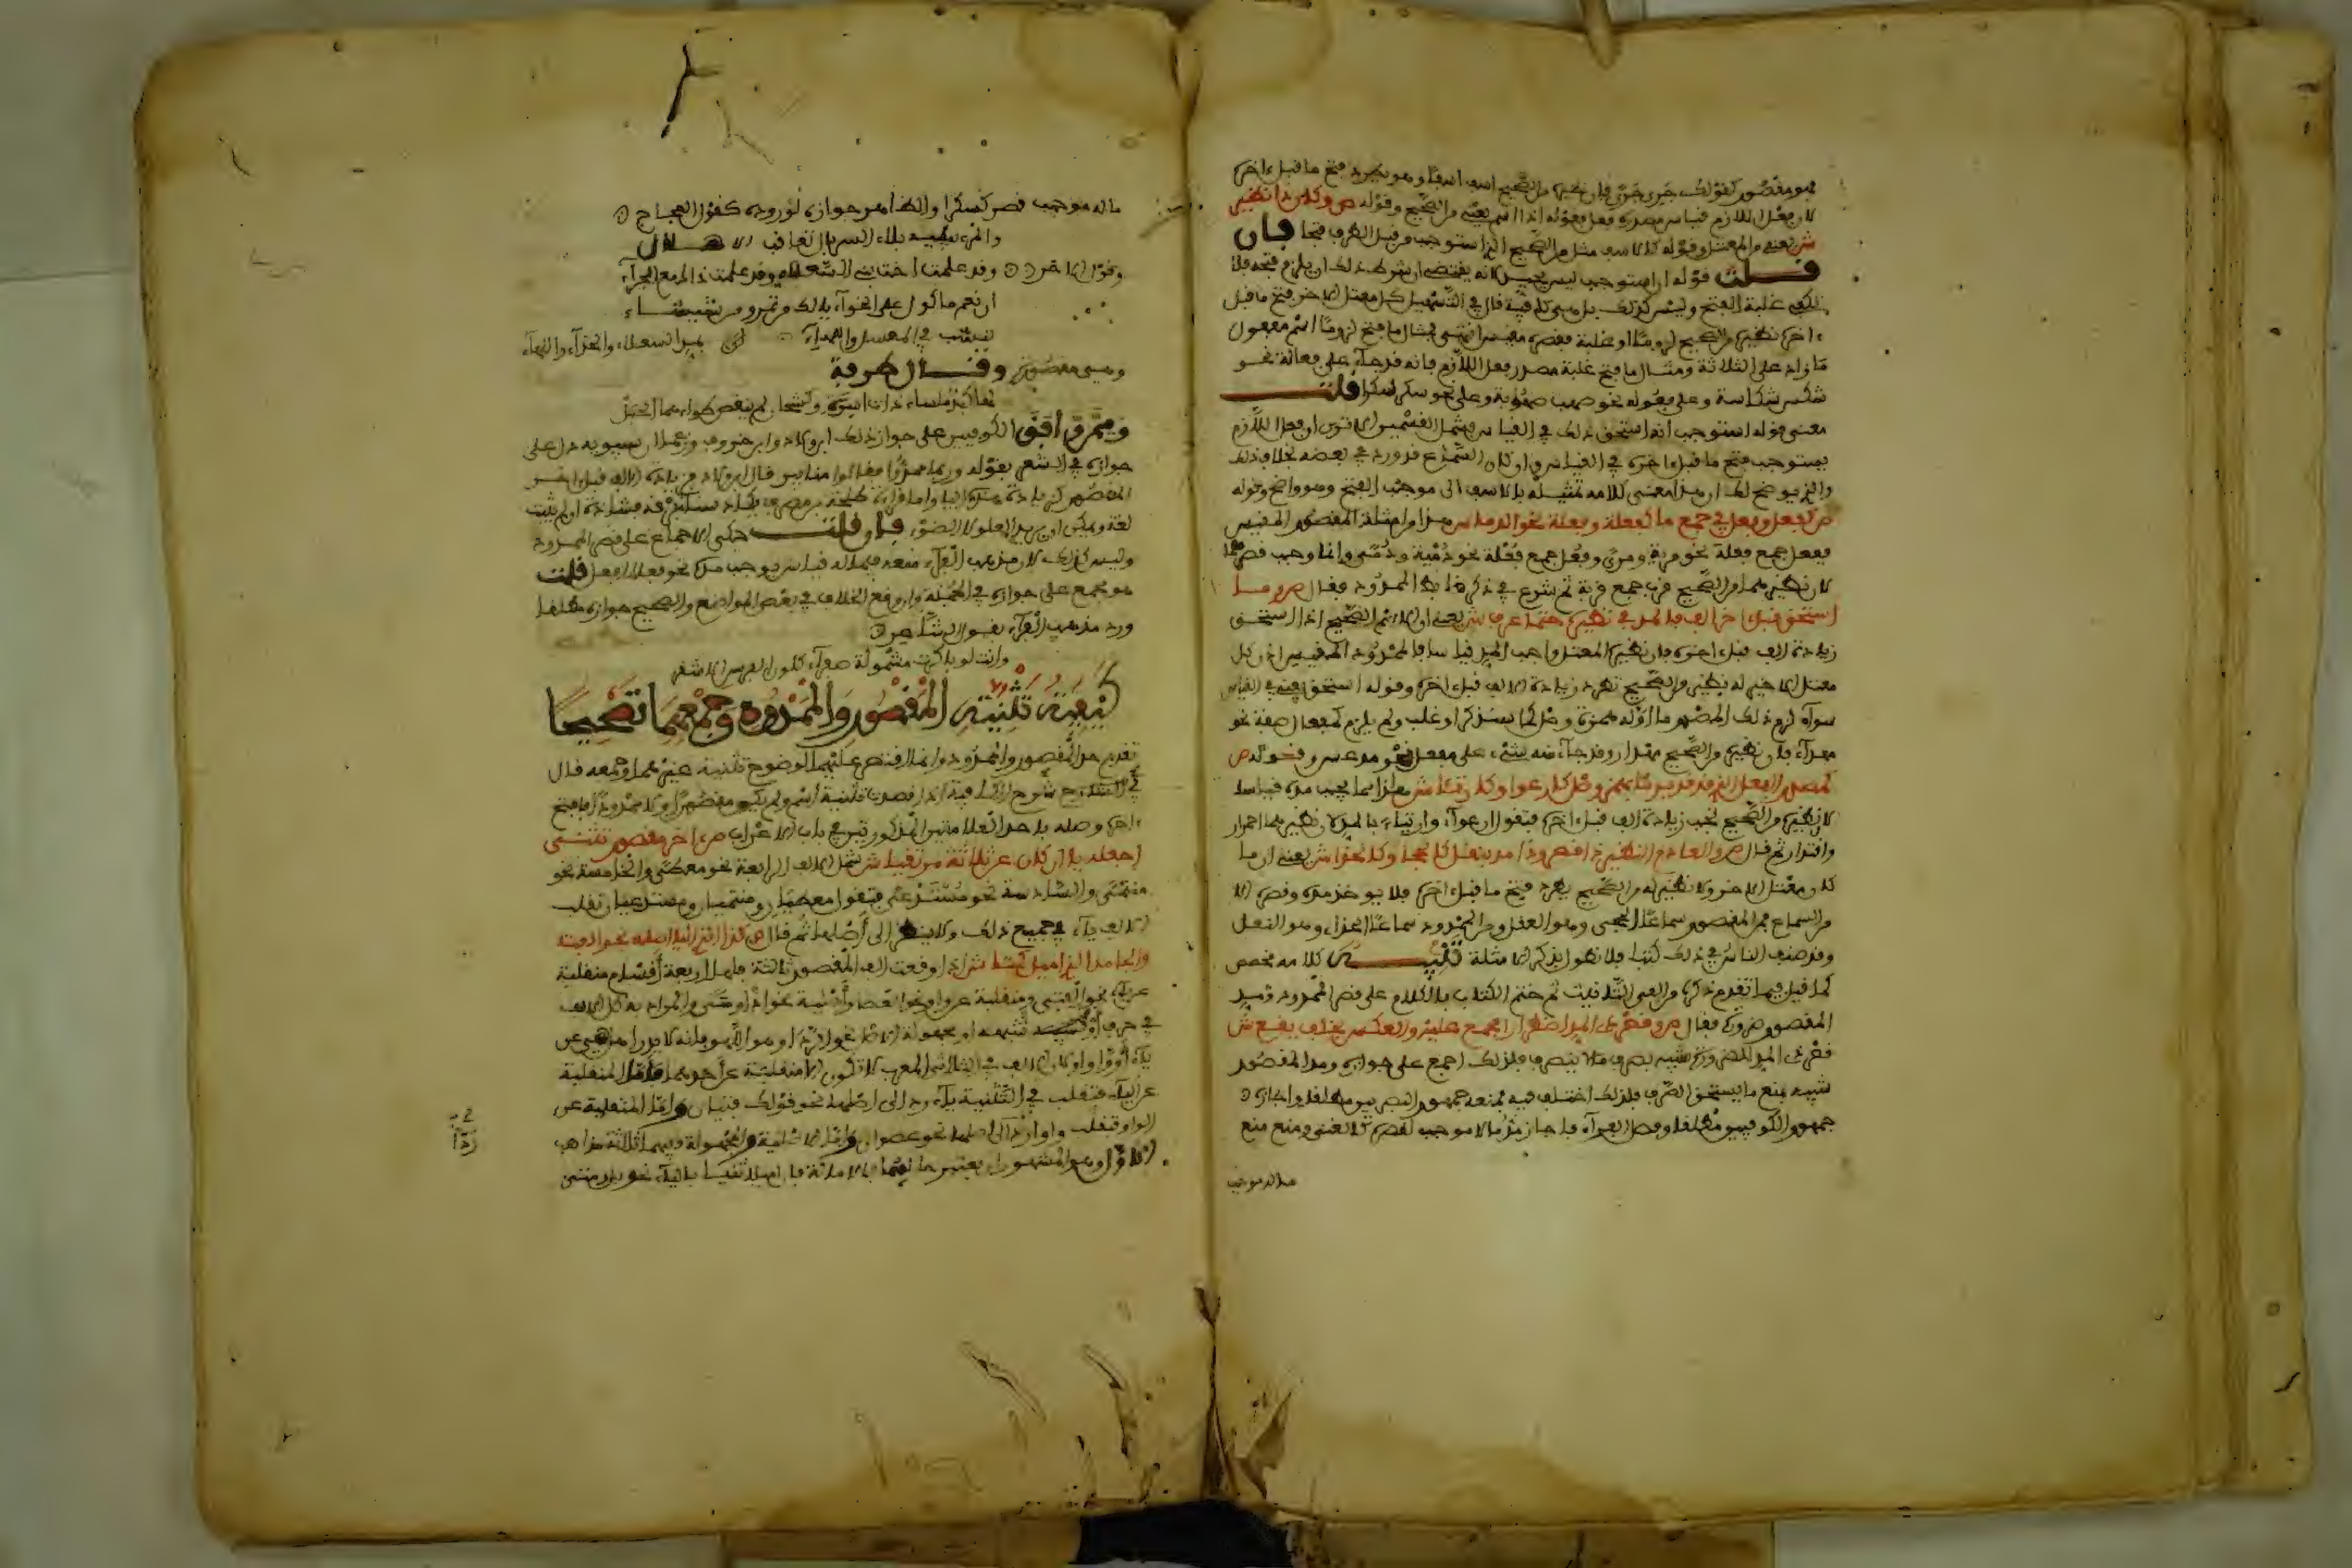 فهو مقصور كقولك جوى جوى فان نظيره من الصحيح اسف اسفا وهو فتح ما قبل اخره
لان فعل اللازم قياس مصدره فعل وقوله اذا اسم يعني من الصحيح وقوله ص وكان ذا نظير
ش يعني من المعتل وقوله كالاسف مثل من الصحيح الذي استوجب من قبل الطرف فتحا فان
قلت قوله ان استوجب ليس بجيد لانه يقتضي ان شرط ذلك ان يلزم فتحه فلا
تكفي غلبة الفتح وليس كذلك بل هي كافية قال في التسهيل كل معتل الاخر فتح ما قبل
اخر نظيره من الصحيح لزوما او غلبة فقصره مقيس انتهى فمثال ما فتح لزوما اسم مفعول
ما زاد على الثلاثة ومثال ما فتح غلبة مصدر فعل اللازم فانه قد جاء على فعالة نحو
شكس شكاسة وعلى فعولة نحو صهب صهوبة وعلى نحو سكر سكرا قلت
معنى قوله استوجب انه استحق ذلك في القياس فيشمل القسمين الا ترى ان فعل اللازم
يستوجب فتح ما قبل اخره في القياس وان كان السماع قد ورد في بعضه بخلاف ذلك
والذي يوضح لك ان هذا معنى كلامه تمثيله بالاسف الى موجب الفتح وهو واضح وقوله
ص كفعل وفعل في جمع ما كفعلة وفعلة نحو الدمى ش هذا من امثلة المقصور المقيس
ففعل جمع فعلة نحو مرية ومرى وفعل جمع فعلة نحو دمية ودمى وانما وجب قصرهما
لان نظيرهما من الصحيح قرب جمع قربة ثم شرع في ذكر ضابط الممدود فقال ص وما
استحق قبل اخر الف فالمد في نظيره حتما عرف ش يعني ان الاسم الصحيح اذا استحق
زيادة الف قبل اخره فان نظيره المعتل واجب المد قياسا فالممدود المقيس اذن كل
معتل الاخر له نظير من الصحيح تطرد زيادة الالف قبل اخره وقوله استحق يعني في القياس
سواء لزم ذلك
مهداء فان نظيره من الصحيح مهذار وقد جاء منه شيء على مفعل نحو مدعس وقوله ص
كمصدر الفعل الذي قد بدئا بهمز وصل كارعوى وكارتأى ش هذا مما يجب مده قياسا
لان نظيره من الصحيح تجب زيادة الف قبل اخره فتقول ارعواء وارتياء بالمد لان نظيرهما احمرار
واقتدار ثم قال ص والعادم النظير ذا قصر وذا مد بنقل كالحجا وكالحذا ش يعني ان ما
كان معتل الاخر ولا نظير له من الصحيح يطرد فتح ما قبل اخره فلا يوخذ مده وقصره الا
من السماع فمن المقصور سماعا الحجى وهو العقل ومن الممدود سماعا الحذاء وهو النعل
وقد صنف الناس في ذلك كتبا فلا نطول بذكر الامثلة تنبيه كلامه مخصص
كما قيل فيما تقدم ذكره من الف التانيث ثم ختم الكتاب بالكلام على قصر الممدود ومد
المقصور ضرورة فقال ص وقصر ذي المد اضطرارا مجمع عليه والعكس بخلف يقع ش
قصر ذي المد للضرورة شبيه بصرف ما لا ينصرف فلذلك اجمع على جوازه ومد المقصور
شبيه بمنع ما يستحق الصرف فلذلك اختلف فيه فمنعه جمهور البصريين مطلقا واجازه
جمهور الكوفيين مطلقا وفصل الفراء فاجاز مد ما لا موجب لقصره كالغنى ومنع منع
ما له موجب
ما له موجب قصر كسكرا والظاهر جوازه لوروده كقول العجاج
والمرء يبليه بلاء السربال تعاقب الاهلال
وقول الاخر وقد علمت اخت بني السعلاء وقد علمت ذاك مع الجراء
ان نعم ماكولا على الخواء يا لك من تمر ومن شيشاء
ينشب في المسعل واللهاء فمد السعلاء والخواء واللهاء
وهي مقصورة وقال طرفة
لها كبد ملساء ذات اسرة وكشحان لم ينقص طواءهما الحبل
وممن وافق الكوفيين على جواز ذلك ابن ولاد وابن خروف وزعما ان سيبويه دل على
جوازه في الشعر بقوله وربما مدوا فقالوا منابير قال ابن ولاد فزيادة الالف قبل اخر
المقصور كزيادة هذه الياء واما قراءة طلحة بن مصرف يكاد سناء برقه فشاذة او لم يثبت
لغة ويمكن ان يريد العلو لا الضوء فان قلت حكى الاجماع على قصر الممدود
وليس كذلك لان مذهب الفراء منعه فيما له قياس يوجب مده نحو فعلاء افعل قلت
هو مجمع على جوازه في الجملة وان وقع الخلاف في بعض المواضع والصحيح جوازه مطلقا
ورد مذهب الفراء بقول الشاعر
وانت لو باكرت مشمولة صفراء كلون الفرس الاشقر
كيفية تثنية المقصور والممدود وجمعهما تصحيحا
تقدم حد المقصور والممدود وانما اقتصر عليهما لوضوح تثنية غيرهما وجمعه قال
في شرح الكافية اذا قصدت تثنية اسم ولم يكن مقصورا ولا ممدودا فافتح
اخره وصله باحدى العلامتين المذكورتين في باب الاعراب ص اخر مقصور تثنى
اجعله يا ان كان عن ثلاثة مرتقيا ش شمل الالف الرابعة نحو معطى والخامسة نحو
منتمى والسادسة نحو مستدعى فتقول معطيان ومنتميان ومستدعيان تقلب
الالف ياء في جميع ذلك ولا ينظر الى اصلها ثم قال ص كذا الذي اليا اصله نحو الفتى
والجامد الذي اميل كمتى ش اذا وقعت الف المقصور ثالثة فلها اربعة اقسام منقلبة
عن ياء نحو الفتى ومنقلبة عن واو نحو العصا واصلية نحو اذا ومتى والمراد به كل الف
في حرف او شبهه او مجهولة الاصل نحو الددا وهو اللهو فانه لا يدرى اهي عن
ياء او واو لان الالف في الثلاثي المعرب لا تكون الا منقلبة عن احدهما فاما المنقلبة
عن الياء فتقلب في التثنية ياء ردا الى اصلها نحو قولك فتيان واما المنقلبة عن
الواو فتقلب واوا ردا الى اصلها نحو عصوان واما الاصلية والمجهولة ففيهما ثلاثة مذاهب
الاول وهو المشهور ان يعتبر حالهما بالامالة فان اميلا ثنيا بالياء نحو بلى ومتى